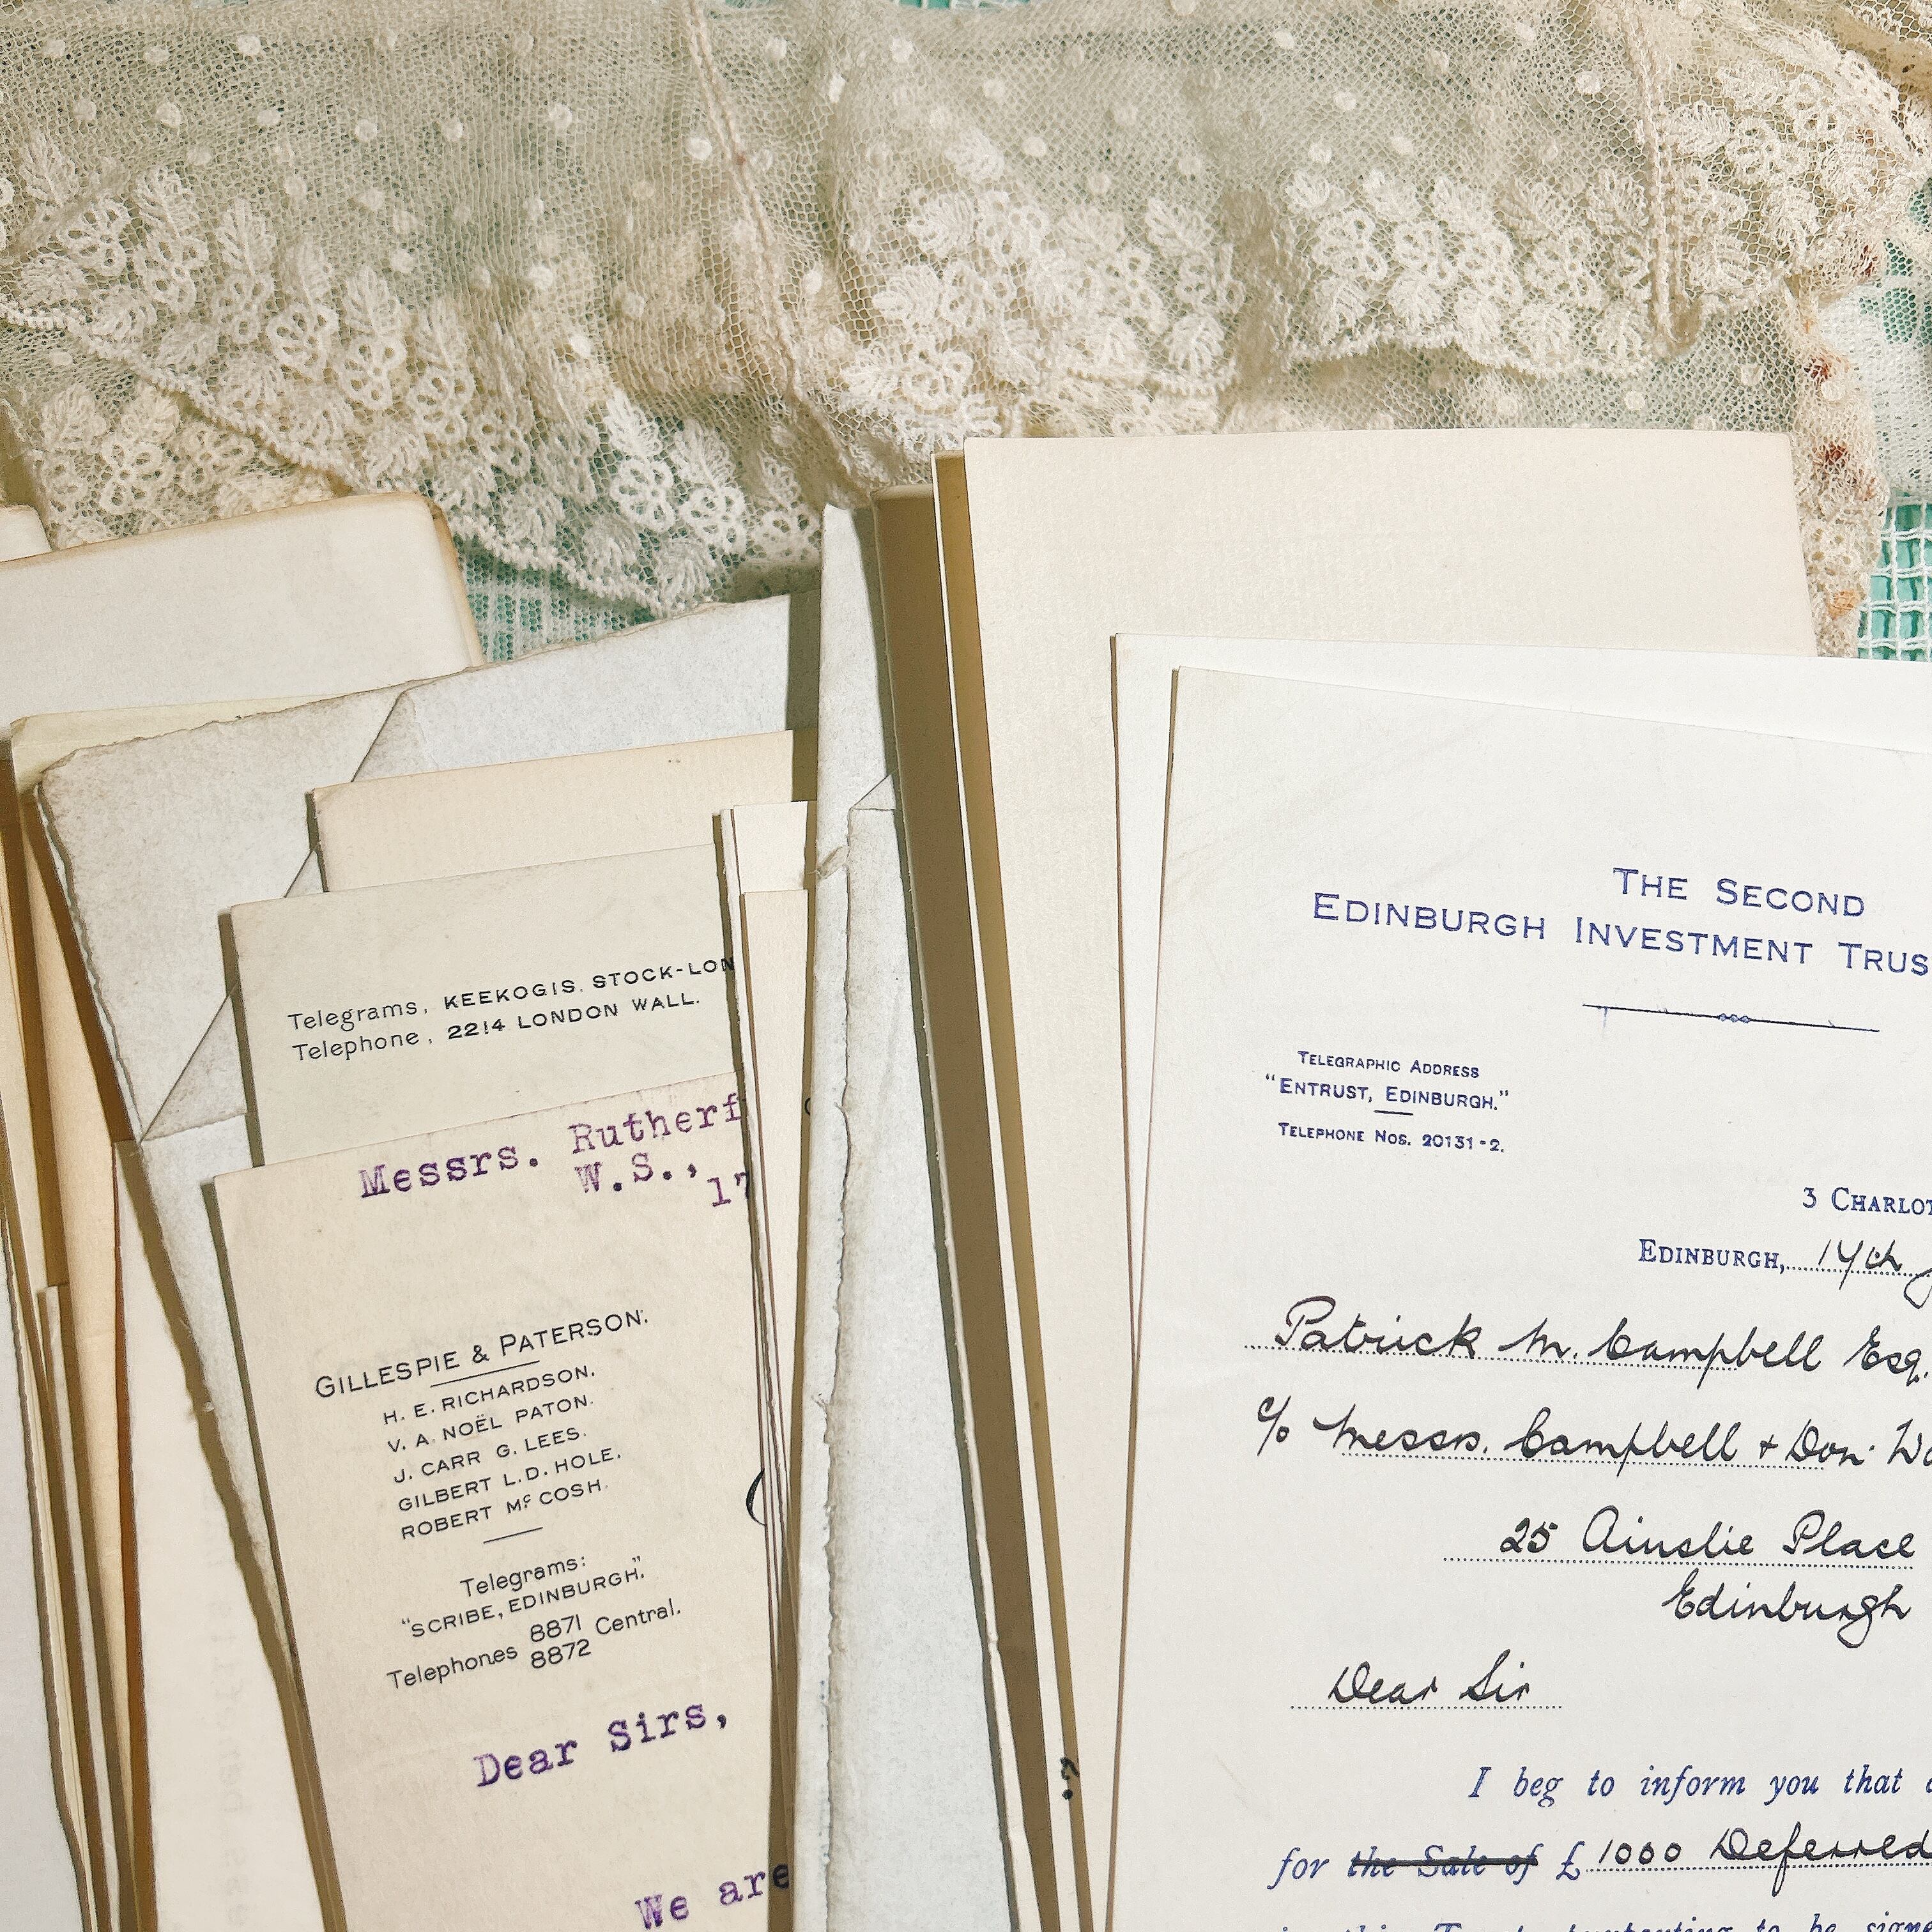 Telegrams, KEEKOGIS. STOCK-LON
Telephone, 2214 LONDON WALL.
Messrs. Rutherf
W.S.,
17
GILLESPIE & PATERSON.
H. E. RICHARDSON.
V. A. NOËL PATON.
J. CARR G. LEES.
GILBERT L. D. HOLE.
ROBERT Mc COSH.
Telegrams:
"SCRIBE, EDINBURGH."
Telephones 8871 Central.
8872
Dear Sirs,
We are
THE SECOND
EDINBURGH INVESTMENT TRUS
TELEGRAPHIC ADDRESS
"ENTRUST, EDINBURGH."
TELEPHONE NOS. 20131-2.
3 CHARLOT
EDINBURGH, 14th
Patrick M. Campbell Esq.
c/o Messrs. Campbell +
25 Ainslie Place
Edinburgh
Dear Sir
I beg to inform you that
for the Sale of £1000 Deferred